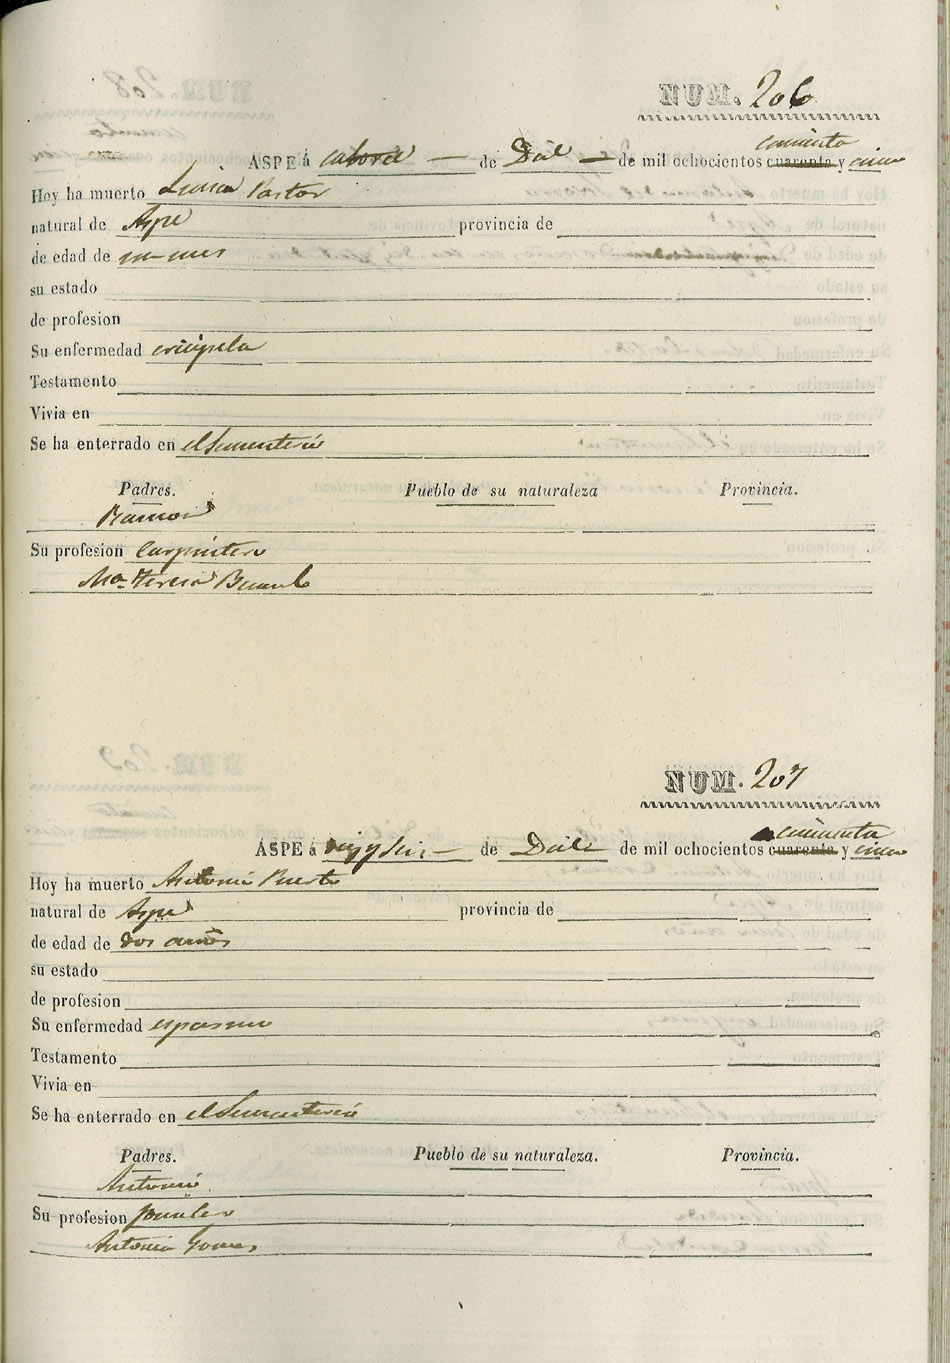 NUM. 206
cincuenta
ASPE á catorce de Dbre de mil ochocientos cuarenta y cinco
Hoy ha muerto Lucia Pastor
natural de Aspe provincia de
de edad de un mes
su estado
de profesion
Su enfermedad
Testamento
Vivia en
Se ha enterrado en el Sementerio
Padres. Pueblo de su naturaleza Provincia.
Ramon
Su profesion Carpintero
Ma. Teresa
NUM. 207
cincuenta
ASPE á de de mil ochocientos cuarenta y cinco
Hoy ha muerto Antonio Puerto
natural de Aspe provincia de
de edad de dos años
su estado
de profesion
Su enfermedad espasmo
Testamento
Vivia en
Se ha enterrado en el Sementerio
Padres. Pueblo de su naturaleza. Provincia.
Antonio
Su profesion
Antonia Gomes